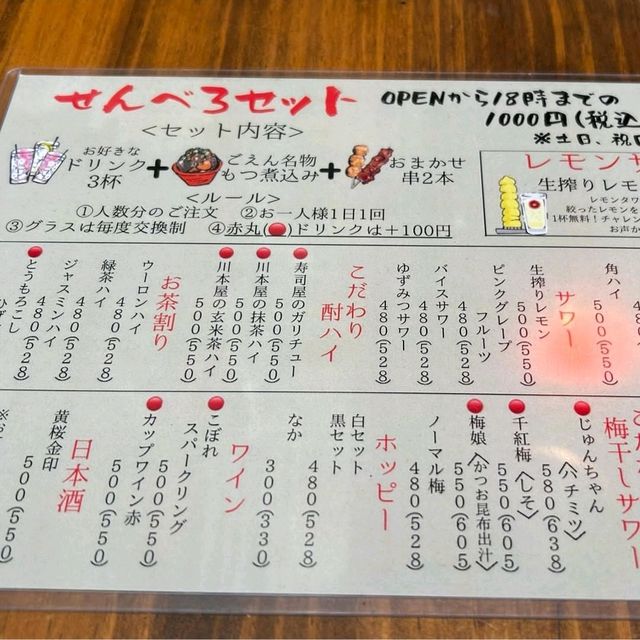 せんべろセット
OPENから18時までの
1000円(税込
※土日、祝日
<セット内容>
お好きな
ドリンク
3杯
+
ごえん名物
もつ煮込み
+
おまかせ
串2本
<ルール>
①人数分のご注文 ②お一人様1日1回
③グラスは毎度交換制 ④赤丸(●)ドリンクは+100円
レモンサ
生搾りレモ
レモンタワ
絞ったレモンを
1杯無料!チャレン
お声か
角ハイ
500(550)
サワー
生搾りレモン
500(550)
ピンクグレープ
フルーツ
480(528)
バイスサワー
480(528)
ゆずみつサワー
480(528)
こだわり
酎ハイ
●寿司屋のガリチュー
500(550)
●川本屋の抹茶ハイ
500(550)
●川本屋の玄米茶ハイ
500(550)
お茶割り
ウーロンハイ
480(528)
緑茶ハイ
480(528)
ジャスミンハイ
480(528)
●とうもろこし
480(528)
梅干しサワー
●じゅんちゃん
<ハチミツ>
580(638)
●千紅梅
<しそ>
550(605)
●梅娘
<かつお昆布出汁>
550(605)
ノーマル梅
480(528)
ホッピー
白セット
黒セット
480(528)
なか
300(330)
ワイン
●こぼれ
スパークリング
500(550)
●カップワイン赤
500(550)
日本酒
黄桜金印
500(550)